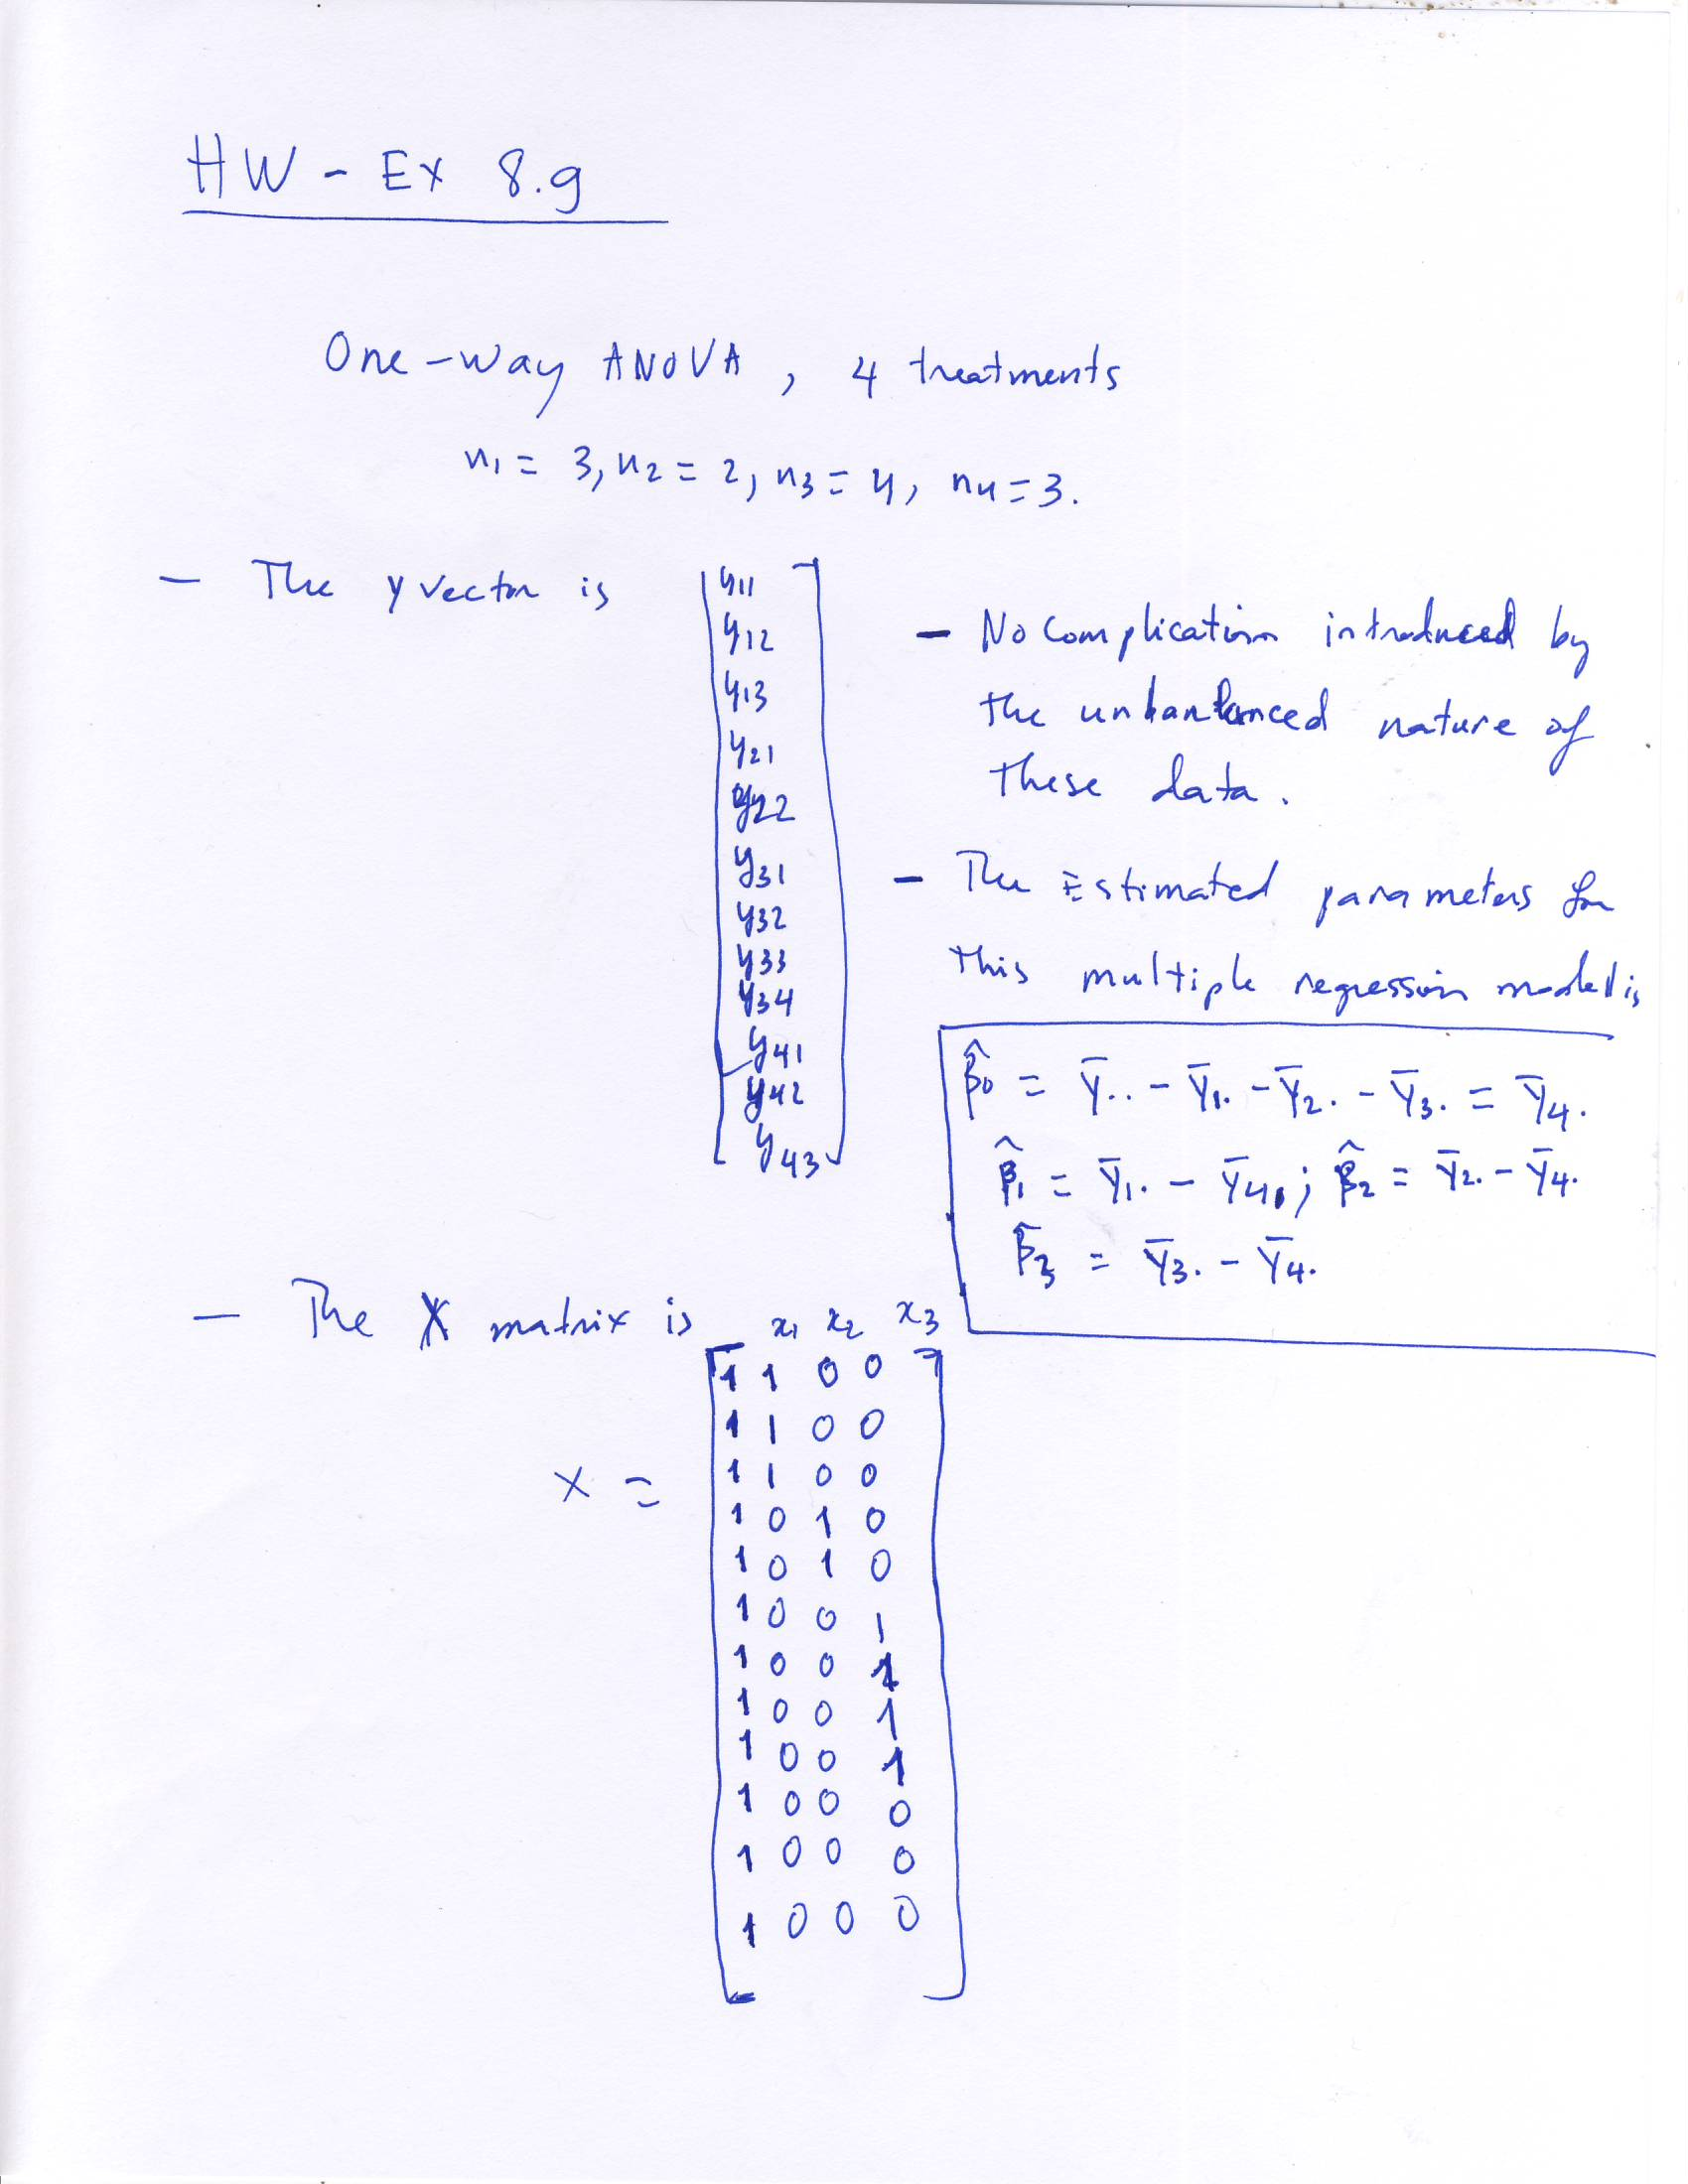 HW - Ex 8.9
One-way ANOVA, 4 treatments
n1 = 3, n2 = 2, n3 = 4, n4 = 3.
- The y vector is
y11
y12
y13
y21
y22
y31
y32
y33
y34
y41
y42
y43
- No complication introduced by
the unbanlanced nature of
these data.
- The Estimated parameters for
this multiple regression model is
β̂0 = ȳ.. - ȳ1. - ȳ2. - ȳ3. = ȳ4.
β̂1 = ȳ1. - ȳ4. ; β̂2 = ȳ2. - ȳ4.
β̂3 = ȳ3. - ȳ4.
- The X matrix is
x1 x2 x3
X =
1 1 0 0
1 1 0 0
1 1 0 0
1 0 1 0
1 0 1 0
1 0 0 1
1 0 0 1
1 0 0 1
1 0 0 1
1 0 0 0
1 0 0 0
1 0 0 0